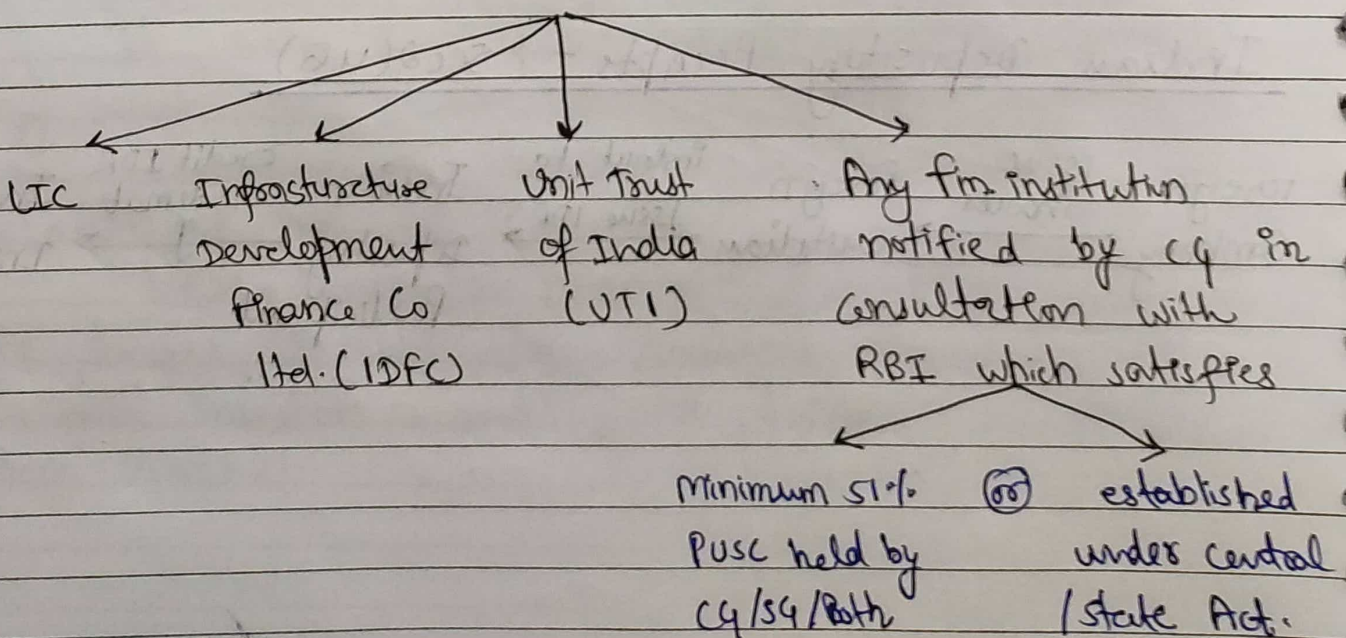 LIC
Infrastructure
Development
finance Co
ltd. (IDFC)
Unit Trust
of India
(UTI)
Any fin. institution
notified by CG in
consultation with
RBI which satisfies
minimum 51%
PUSC held by
CG/SG/Both
or
established
under central
/State Act.